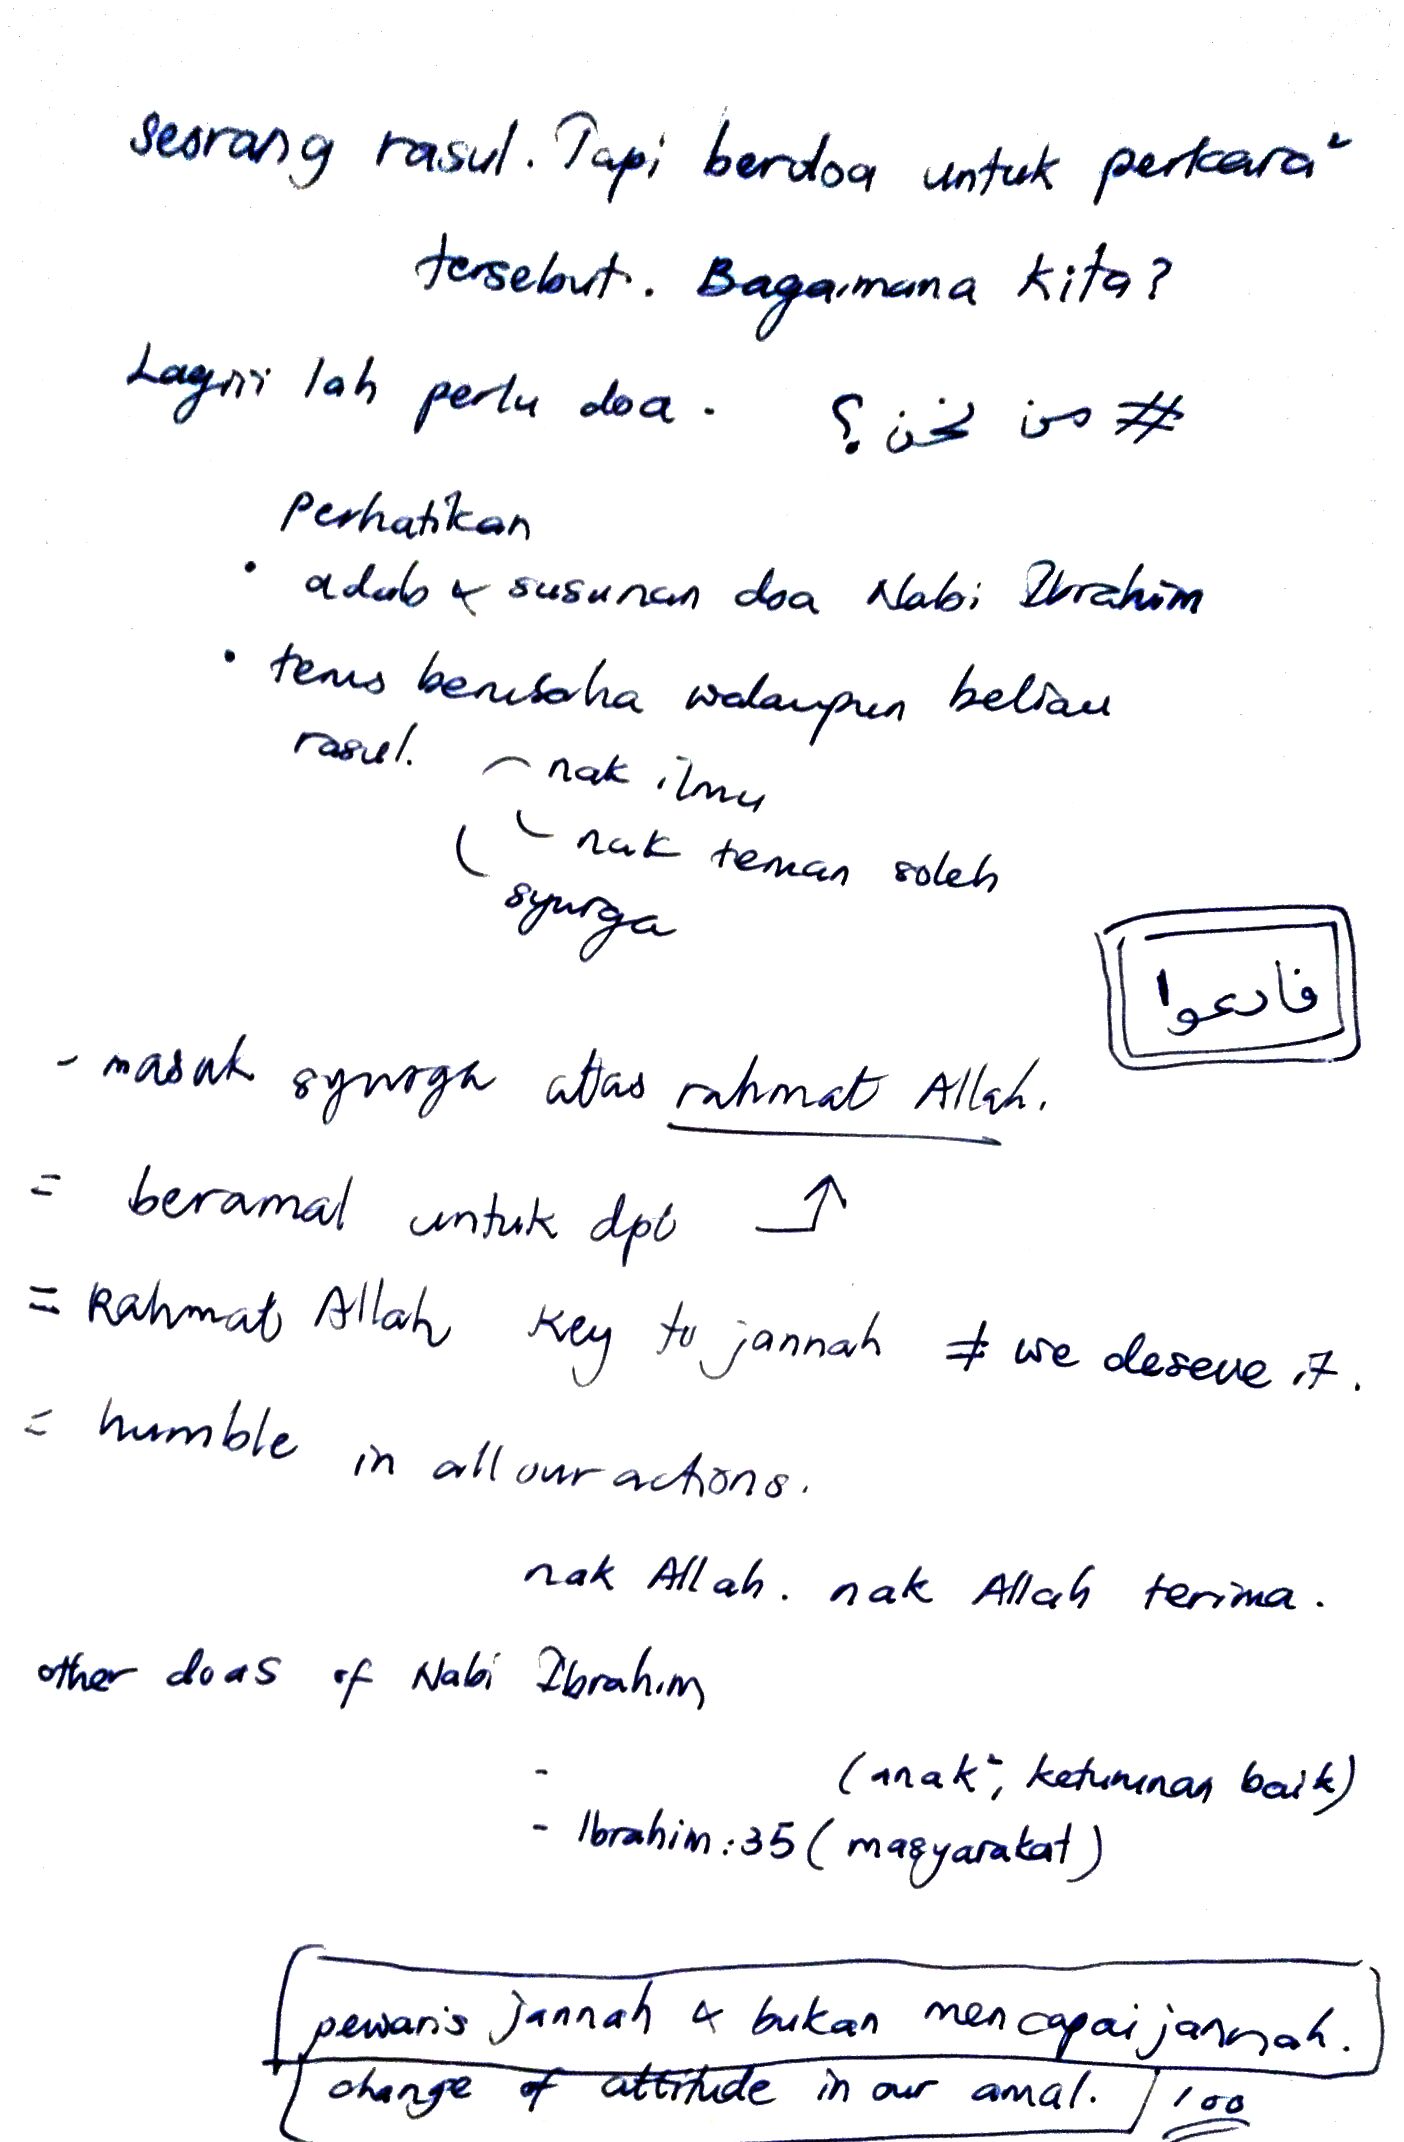 seorang rasul. Tapi berdoa untuk perkara²
tersebut. Bagaimana kita?
Lagiii lah perlu doa. # من نحن ؟
Perhatikan
• adab & susunan doa Nabi Ibrahim
• terus berusaha walaupun beliau
rasul.
nak ilmu
nak teman soleh
syurga
فادعوا
- masuk syurga atas rahmat Allah.
= beramal untuk dpt
= Rahmat Allah key to jannah ≠ we deseve it.
= humble in all our actions.
nak Allah. nak Allah terima.
other doas of Nabi Ibrahim
- (anak², keturunan baik)
- Ibrahim: 35 (masyarakat)
pewaris jannah & bukan mencapai jannah.
change of attitude in our amal. 100